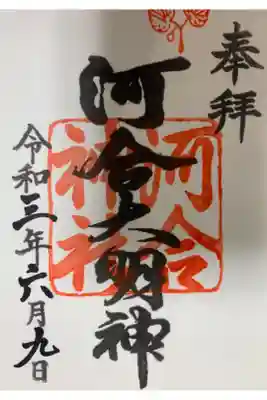 奉拝
河合大明神
河合
神社
令和三年六月九日